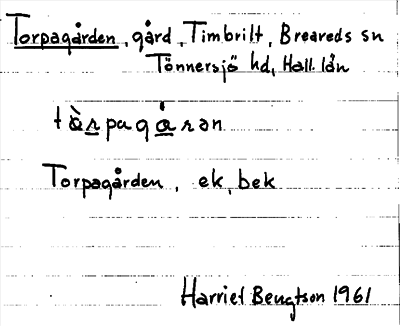 Torpagården, gård, Timbrilt, Breareds sn
Tönnersjö hd, Hall. län
tò̱ṟpagå̱ran
Torpagården, ek, bek
Harriet Bengtson 1961